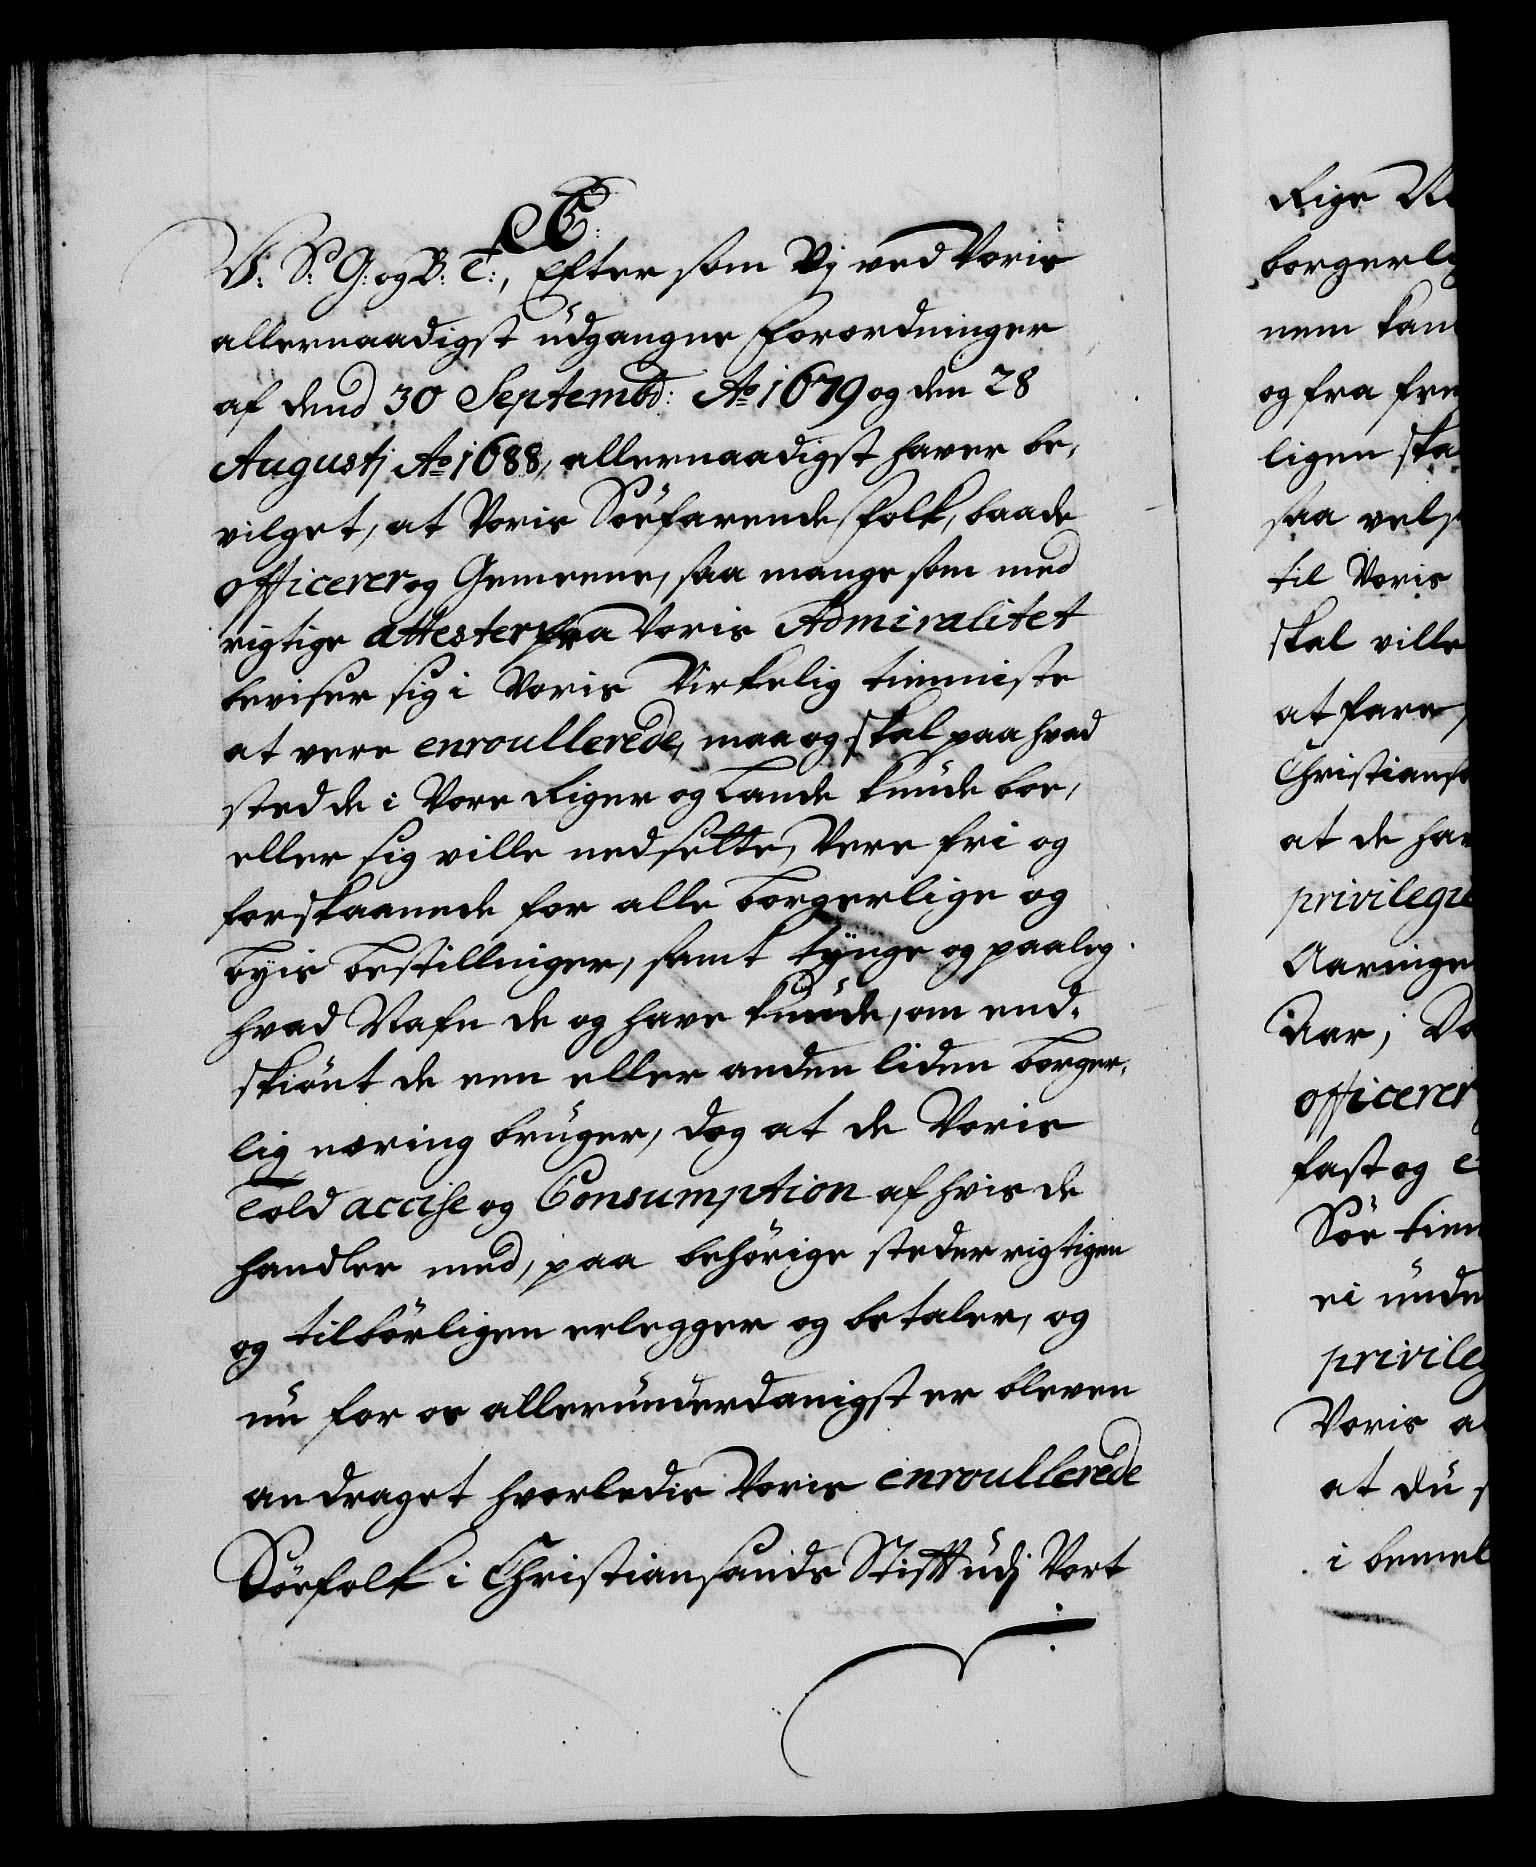 C E:
V: S: G: og B: T:, Efter som Vj ved Voris
allernaadigst udgangne Forordninger
af dend 30 Septembd: Ao 1679 og den 28
Augustj Ao 1688, allernaadigst haver be-
vilget, at Voris Söefarende folk, baade
officerer og Gemeene, saa mange som med
rigtige attester fra Voris Admiralitet
beviser sig i Voris Virkelig tienniste
at vere enroullerede, maa og skal paa hvad
sted de i Vore Riger og Lande kunde boe,
eller sig ville nedsette, Vere fri og
forskaanede for alle borgerlige og
byis bestillinger, samt tynge og paaleg
hvad Nafn de og have kunde, om end-
skiönt de een eller anden liden borger-
lig næring bruger, dog at de Voris
Told accise og Consumption af hvis de
handler med, paa behörige steder rigtigen
og tilbörligen erlegger og betaler, og
nu for os allerunderdanigst er bleven
andraget hvorledis Voris enroullerede
Söefolk i Christiansands Stifft udj Vort
Rige
borgerli
nem kan
og fra fre
ligen ska
saa vel
til Voris
skal ville
at fare,
Christiansa
at de hav
privilegie
Aaringe
Aar; Da
officerer
fast og e
Söe tien
ei unde
privileg
Voris a
at du
i bemel